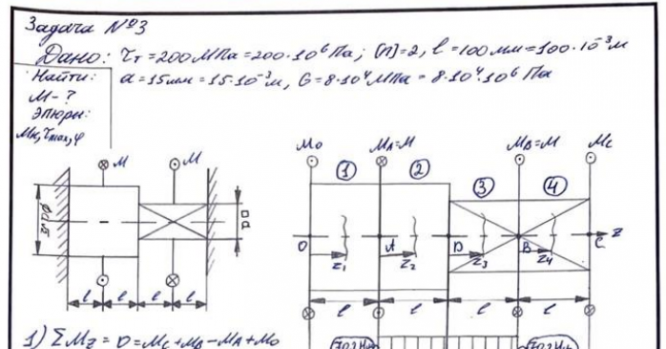 Задача №3
Дано: τт=200МПа=200·10⁶Па; [n]=2, l=100мм=100·10⁻³м
Найти: a=15мм=15·10⁻³м, G=8·10⁴МПа=8·10⁴·10⁶Па
M-?
Эпюры:
Mк, τmax, φ
M M
a
l l l l
M₀ MA=M MB=M MC
① ② ③ ④
O A D B C z
z₁ z₂ z₃ z₄
l l l l
1) ΣMz=0=MC+MB-MA+M₀